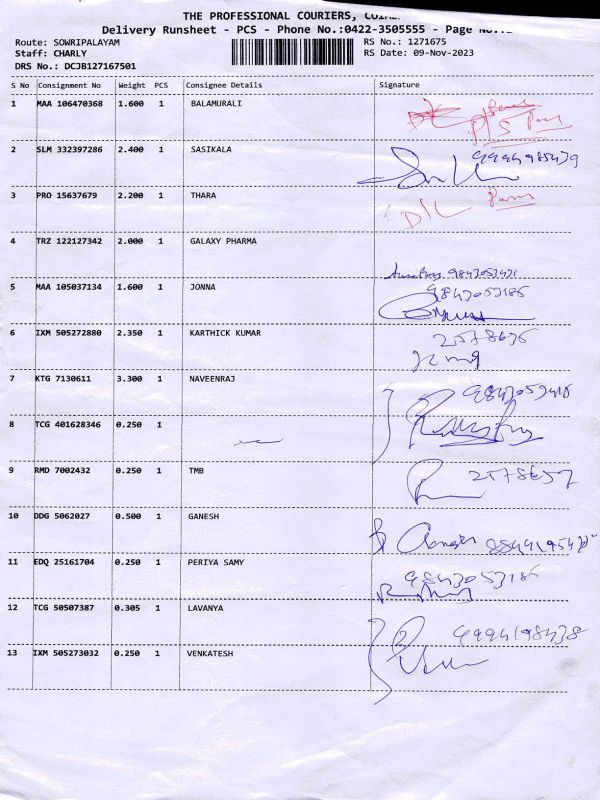 THE PROFESSIONAL COURIERS,
Delivery Runsheet - PCS - Phone No.:0422-3505555 - Page
Route: SOWRIPALAYAM RS No.: 1271675
Staff: CHARLY RS Date: 09-Nov-2023
DRS No.: DCJB127167501
S No Consignment No Weight PCS Consignee Details Signature
1 MAA 106470368 1.600 1 BALAMURALI
2 SLM 332397286 2.400 1 SASIKALA
3 PRO 15637679 2.200 1 THARA
D/L
4 TRZ 122127342 2.000 1 GALAXY PHARMA
9843053431
5 MAA 105037134 1.600 1 JONNA 9843053186
6 IXM 505272880 2.350 1 KARTHICK KUMAR
7 KTG 7130611 3.300 1 NAVEENRAJ
8 TCG 401628346 0.250 1
9 RMD 7002432 0.250 1 TMB 2578657
10 DDG 5062027 0.500 1 GANESH
11 EDQ 25161704 0.250 1 PERIYA SAMY 9843053186
12 TCG 50507387 0.305 1 LAVANYA 9994198438
13 IXM 505273032 0.250 1 VENKATESH